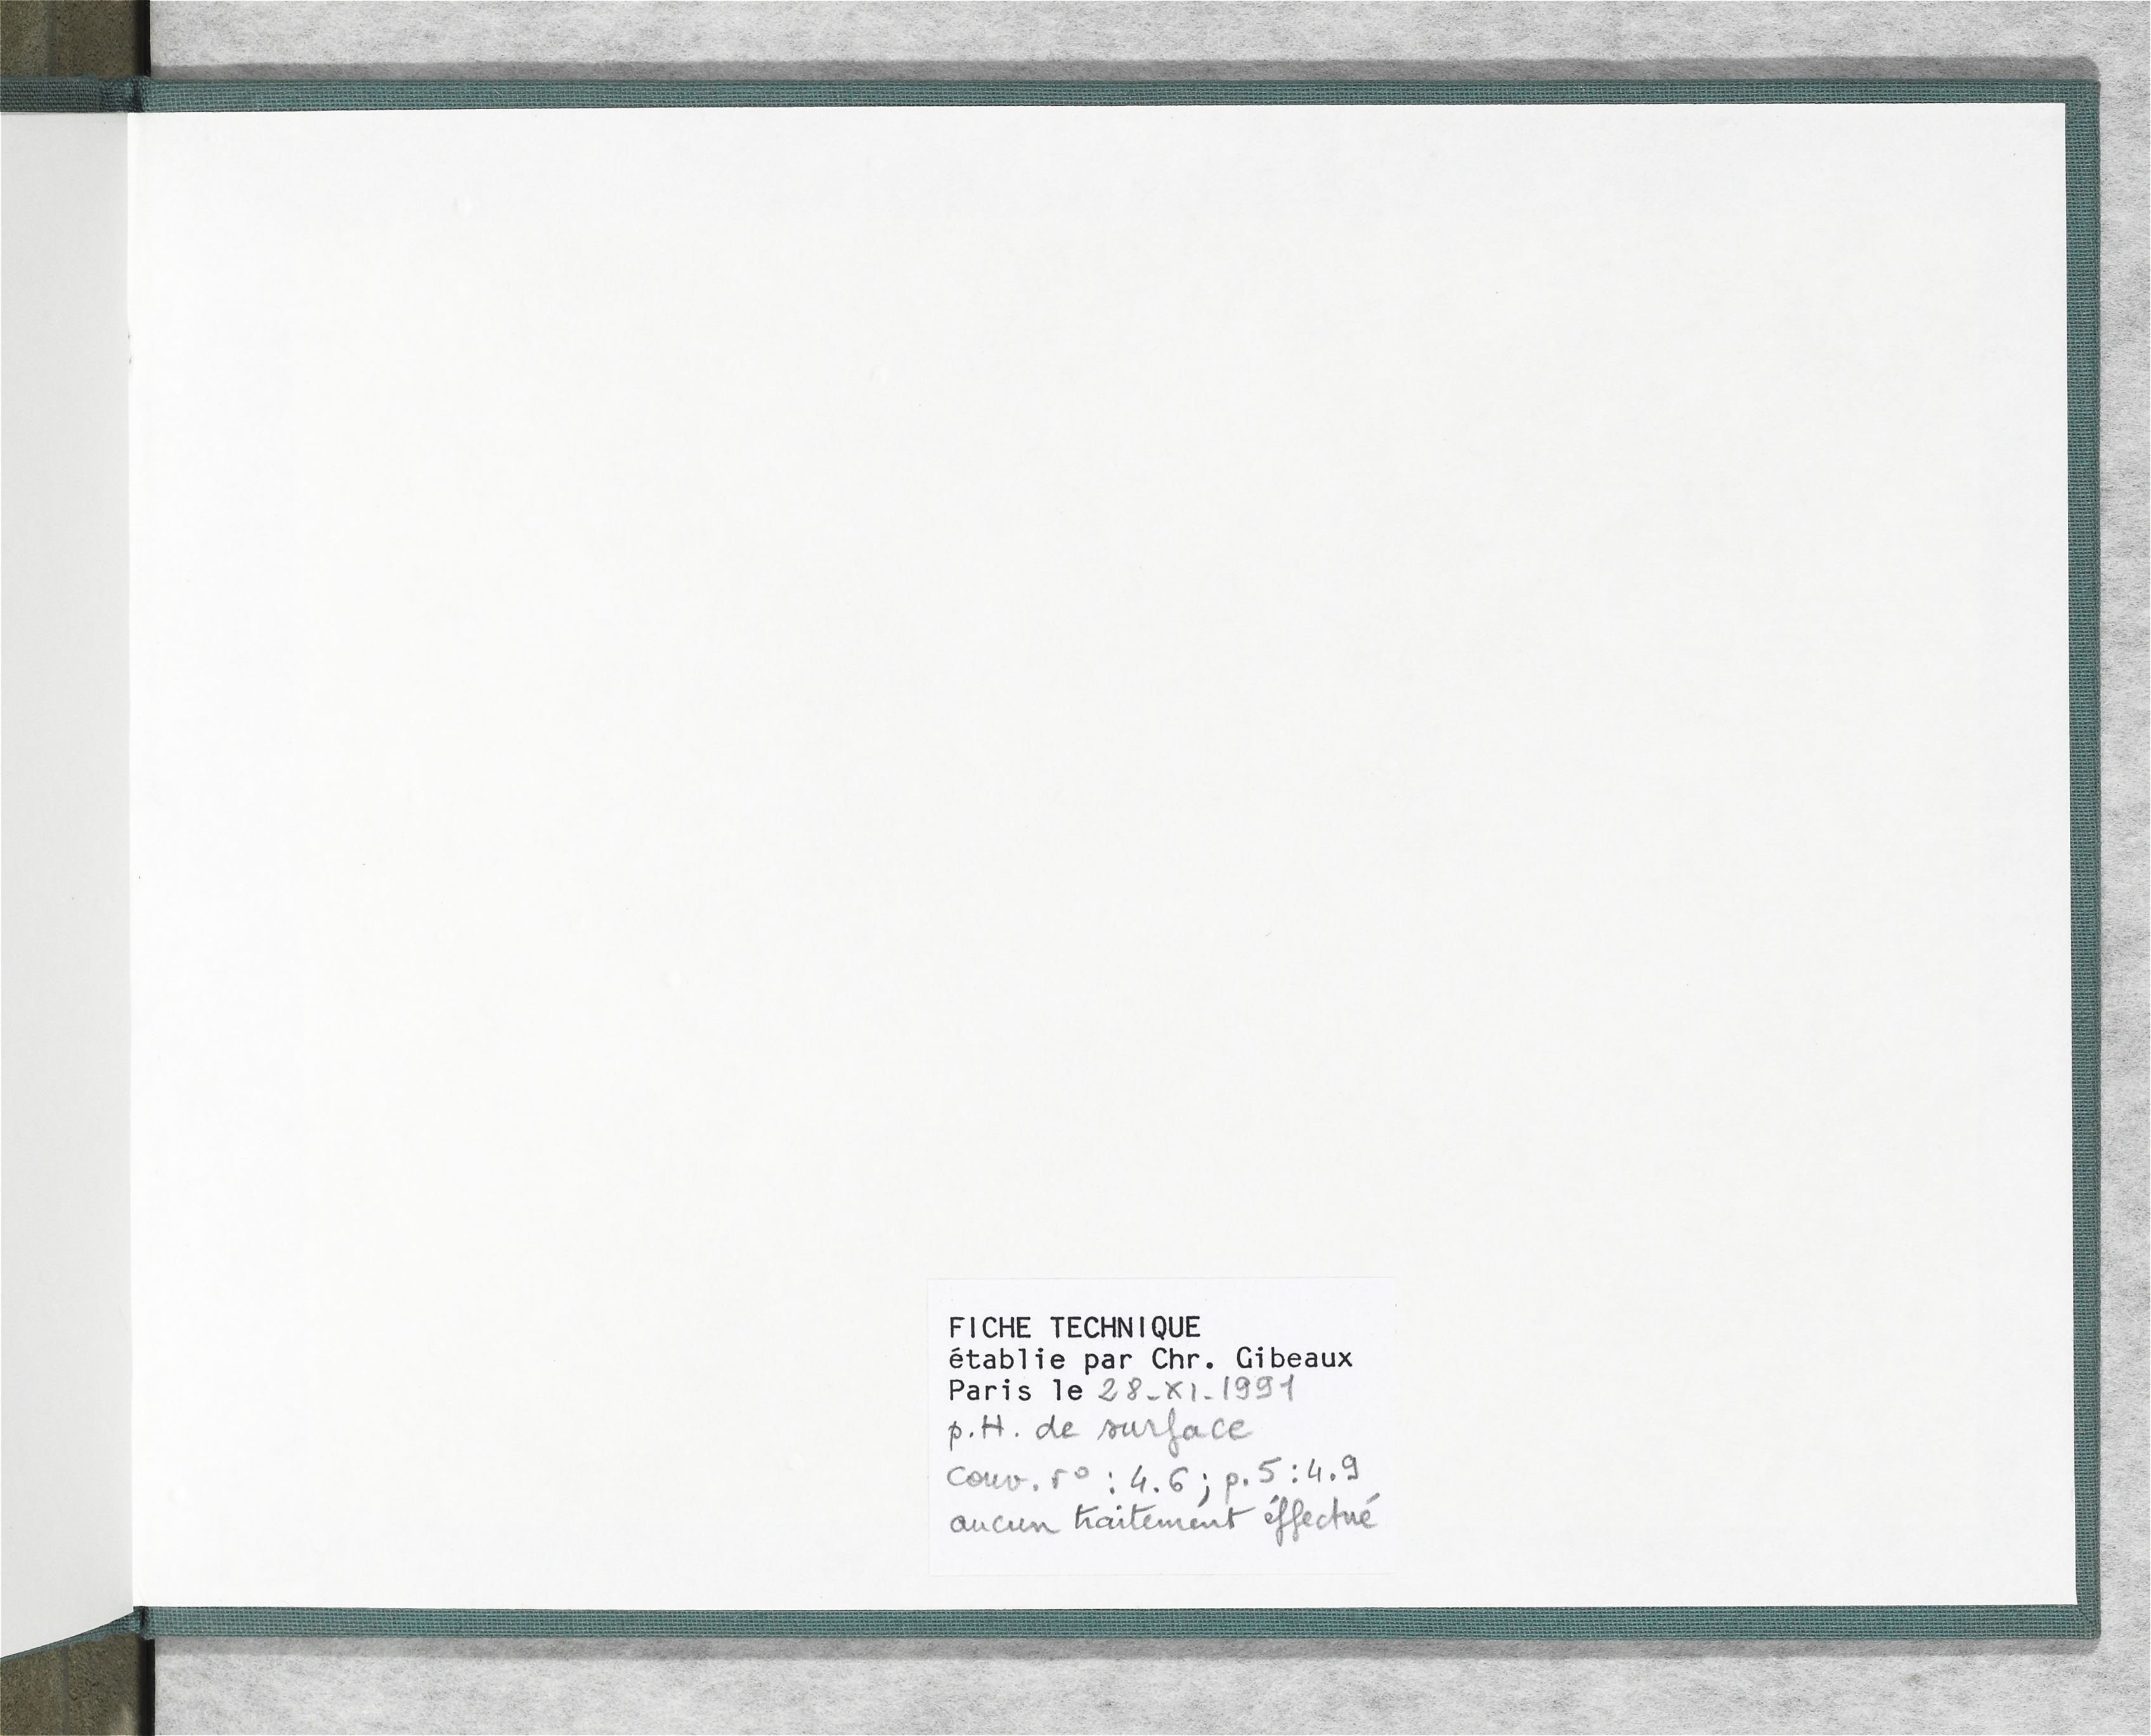 FICHE TECHNIQUE
établie par Chr. Gibeaux
Paris le 28-XI-1991
p.H. de surface
couv. r° : 4.6 ; p.5 : 4.9
aucun traitement éffectué